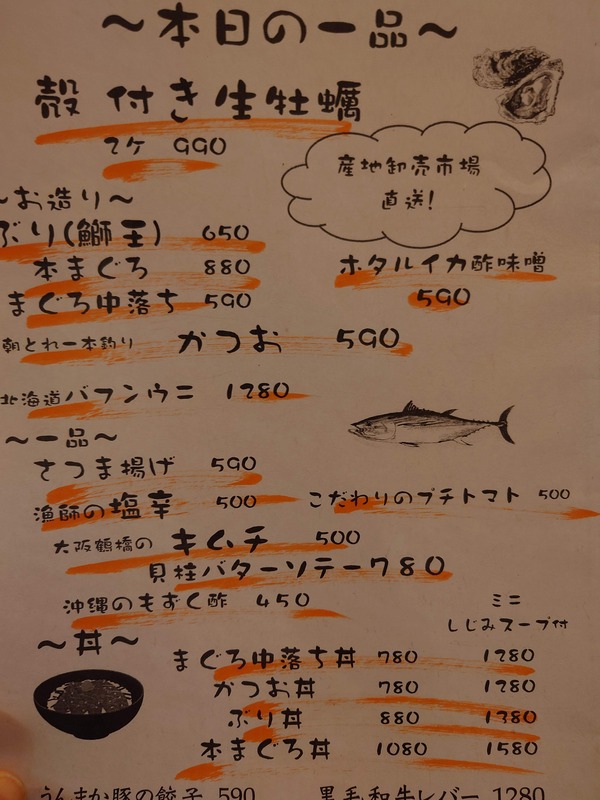 ～本日の一品～
殻付き生牡蠣
2ケ 990
産地卸売市場
直送!
～お造り～
ぶり(鰤王) 650
本まぐろ 880
ホタルイカ酢味噌
まぐろ中落ち 590
590
朝とれ一本釣り かつお 590
北海道バフンウニ 1280
～一品～
さつま揚げ 590
漁師の塩辛 500
こだわりのプチトマト 500
大阪鶴橋の キムチ 500
貝柱バターソテー780
沖縄のもずく酢 450
ミニ
しじみスープ付
～丼～
まぐろ中落ち丼 780 1280
かつお丼 780 1280
ぶり丼 880 1380
本まぐろ丼 1080 1580
うんまか豚の餃子 590
黒毛和牛レバー 1280